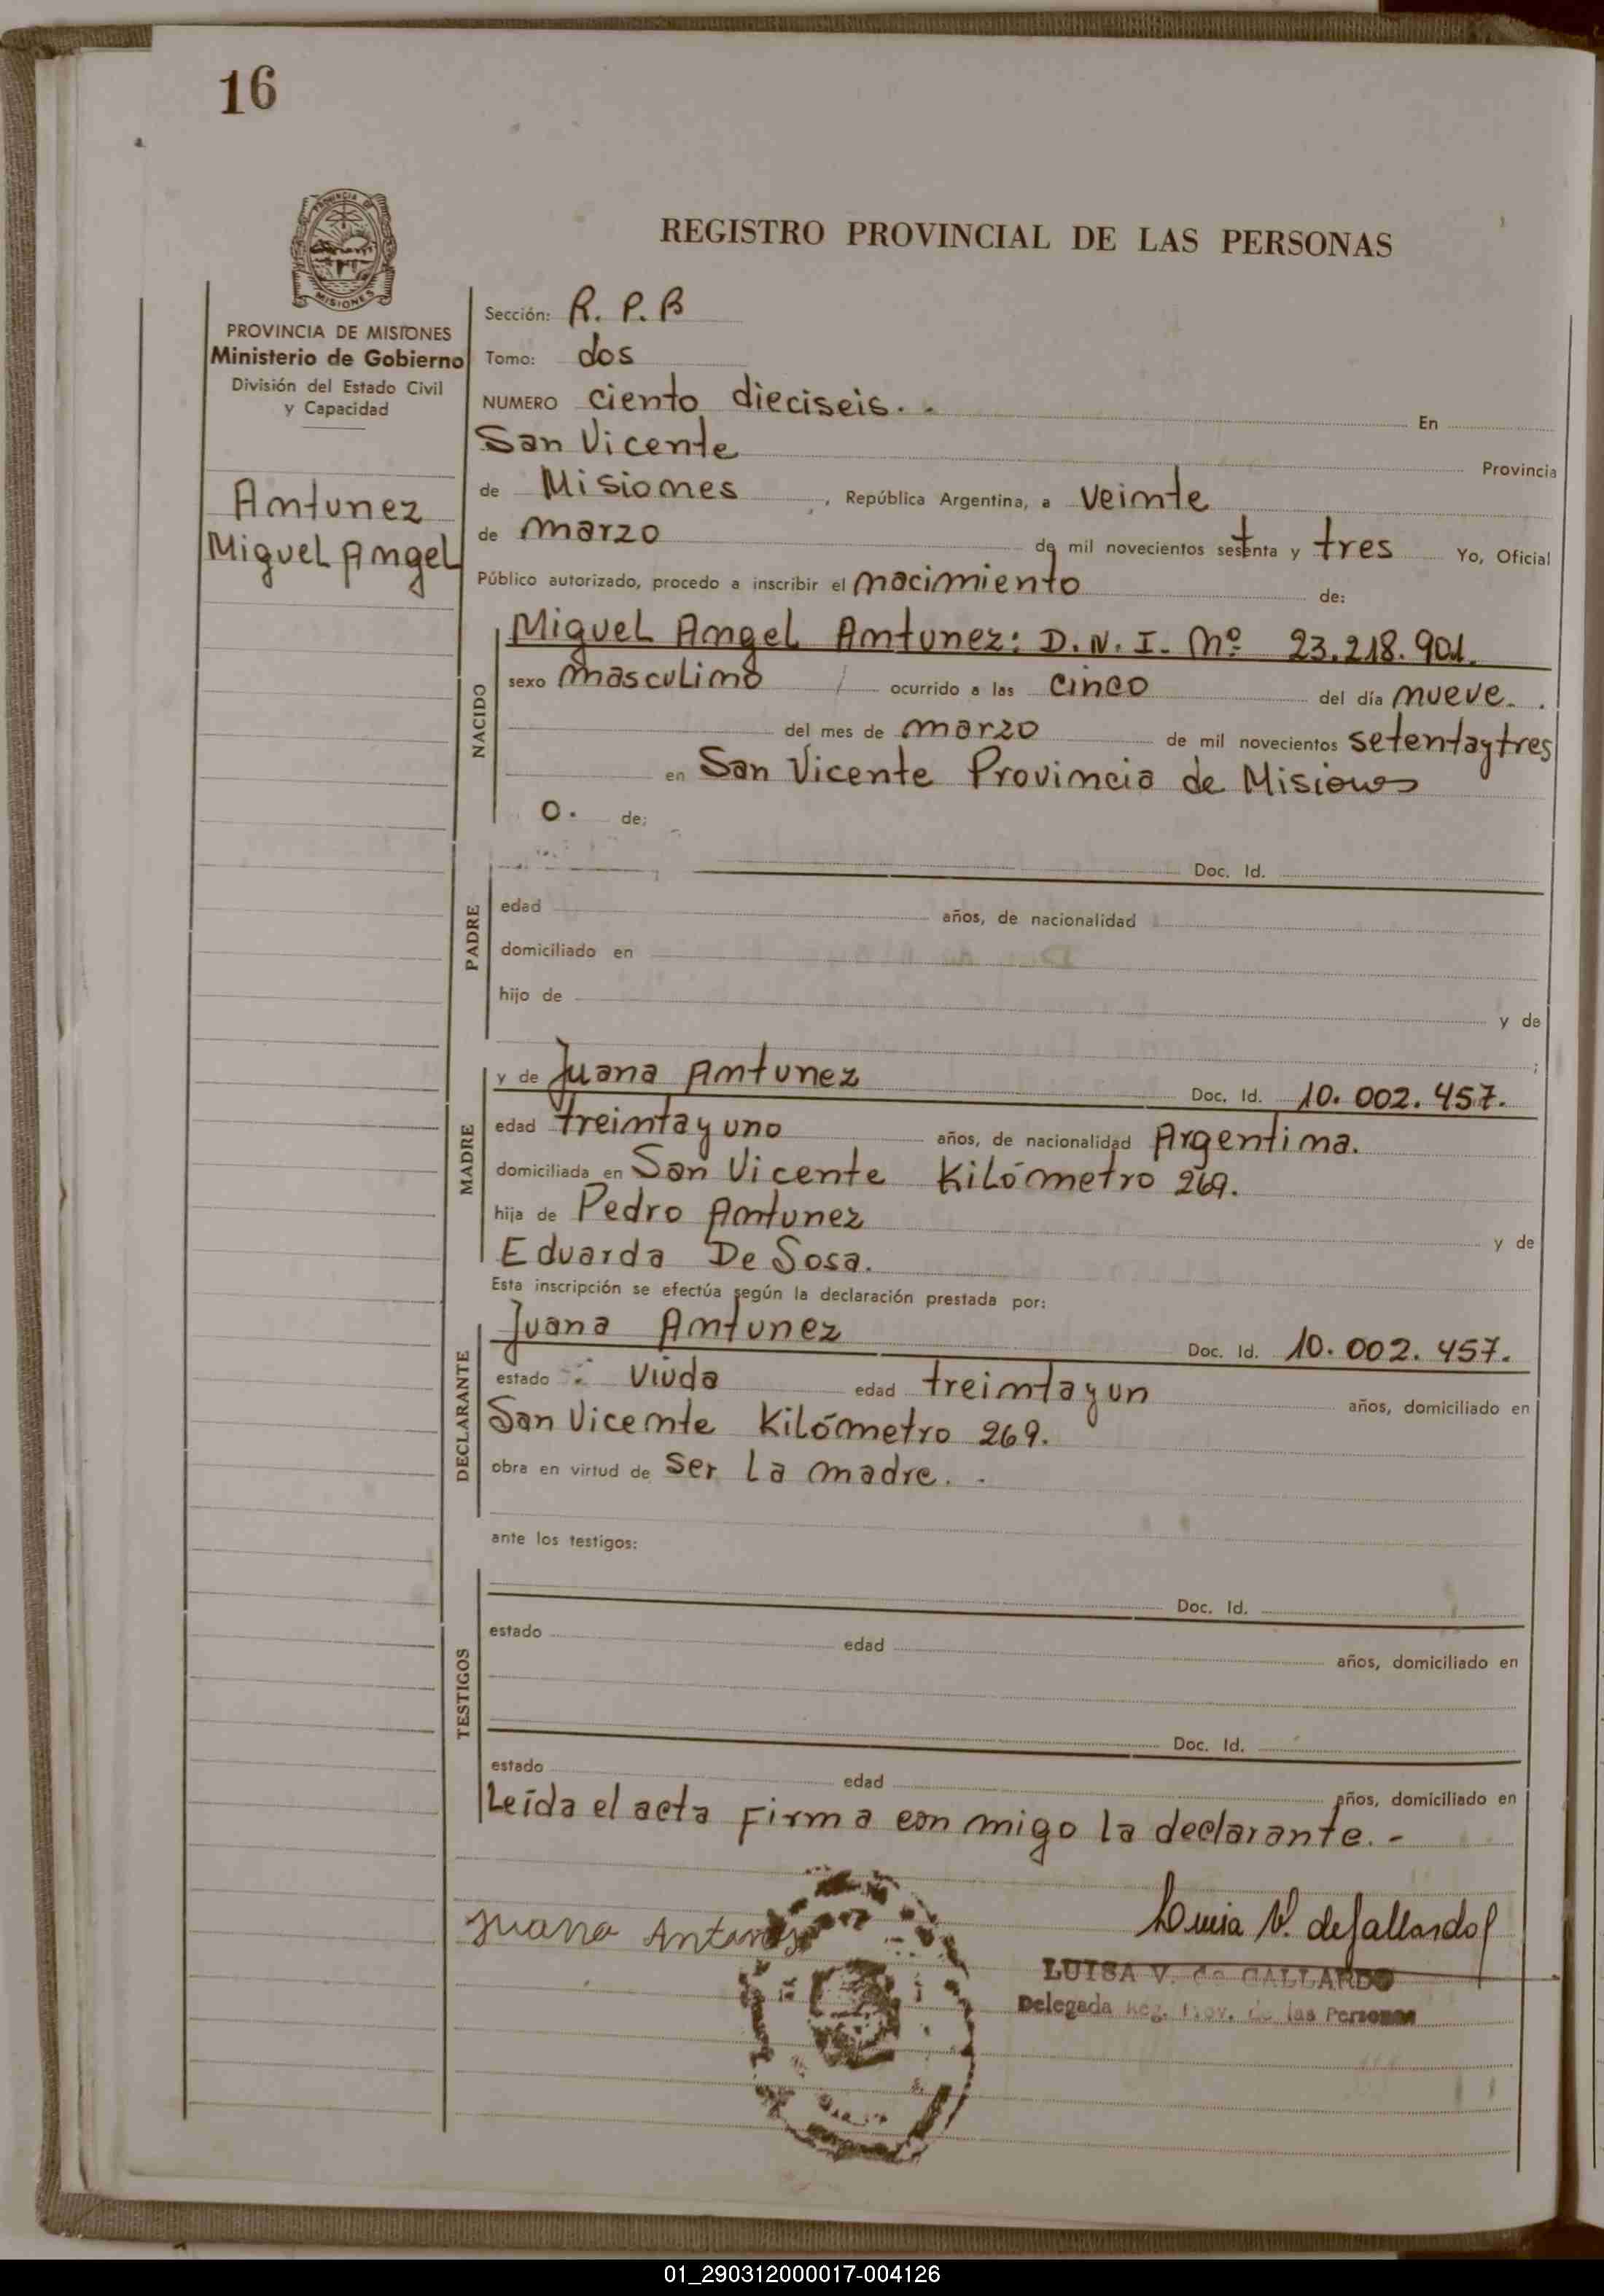 16
PROVINCIA DE
MISIONES
REGISTRO PROVINCIAL DE LAS PERSONAS
PROVINCIA DE MISIONES
Ministerio de Gobierno
División del Estado Civil
y Capacidad
Antunez
Miguel Angel
Sección: R. P. B
Tomo: dos
NUMERO ciento dieciseis. . En
San Vicente Provincia
de Misiones, República Argentina, a veinte
de marzo de mil novecientos setenta y tres Yo, Oficial
Público autorizado, procedo a inscribir el nacimiento de:
NACIDO
Miguel Angel Antunez: D. N. I. Nº 23.218.901.
sexo masculino / ocurrido a las cinco del día nueve. .
del mes de marzo de mil novecientos setentaytres
en San Vicente Provincia de Misiones
O. de:
PADRE
Doc. Id.
edad años, de nacionalidad
domiciliado en
hijo de y de
;
MADRE
y de Juana Antunez Doc. Id. 10.002.457.
edad treinta y uno años, de nacionalidad Argentina.
domiciliada en San Vicente Kilómetro 269.
hija de Pedro Antunez y de
Eduarda De Sosa.
Esta inscripción se efectúa según la declaración prestada por:
DECLARANTE
Juana Antunez Doc. Id. 10.002.457.
estado : viuda edad treinta y un años, domiciliado en
San Vicente Kilómetro 269.
obra en virtud de ser la madre. .
ante los testigos:
TESTIGOS
Doc. Id.
estado edad años, domiciliado en
Doc. Id.
estado edad años, domiciliado en
Leída el acta firma con migo la declarante. -
Juana Antunez
Luisa V. de Gallardo
LUISA V. de GALLARDO
Delegada Reg. Prov. de las Personas
01_290312000017-004126